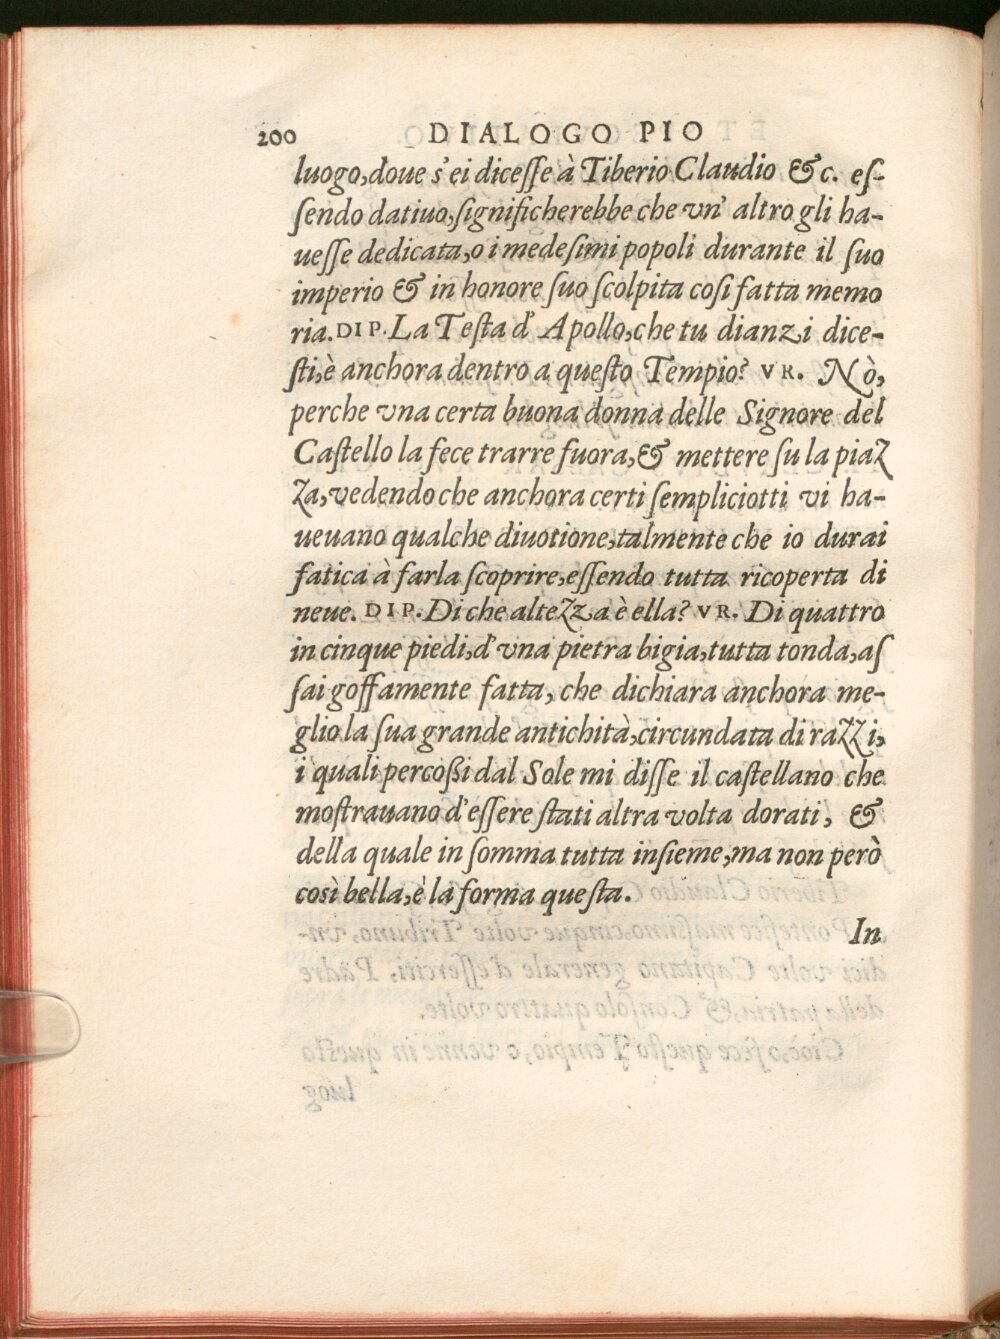 200 DIALOGO PIO
luogo, doue s' ei dicesse à Tiberio Claudio & c. es-
sendo datiuo, significherebbe che vn' altro gli ha-
uesse dedicata, o i medesimi popoli durante il suo
imperio & in honore suo scolpita cosi fatta memo
ria. DIP. La Testa d' Apollo, che tu dianzi dice-
sti, è anchora dentro a questo Tempio? VR. Nò,
perche vna certa buona donna delle Signore del
Castello la fece trarre fuora, & mettere su la piaz
za, vedendo che anchora certi sempliciotti vi ha-
ueuano qualche diuotione, talmente che io durai
fatica à farla scoprire, essendo tutta ricoperta di
neue. DIP. Di che altezza è ella? VR. Di quattro
in cinque piedi, d' vna pietra bigia, tutta tonda, as
sai goffamente fatta, che dichiara anchora me-
glio la sua grande antichità, circundata di razzi,
i quali percoßi dal Sole mi disse il castellano che
mostrauano d' essere stati altra volta dorati, &
della quale in somma tutta insieme, ma non però
così bella, è la forma questa.
In